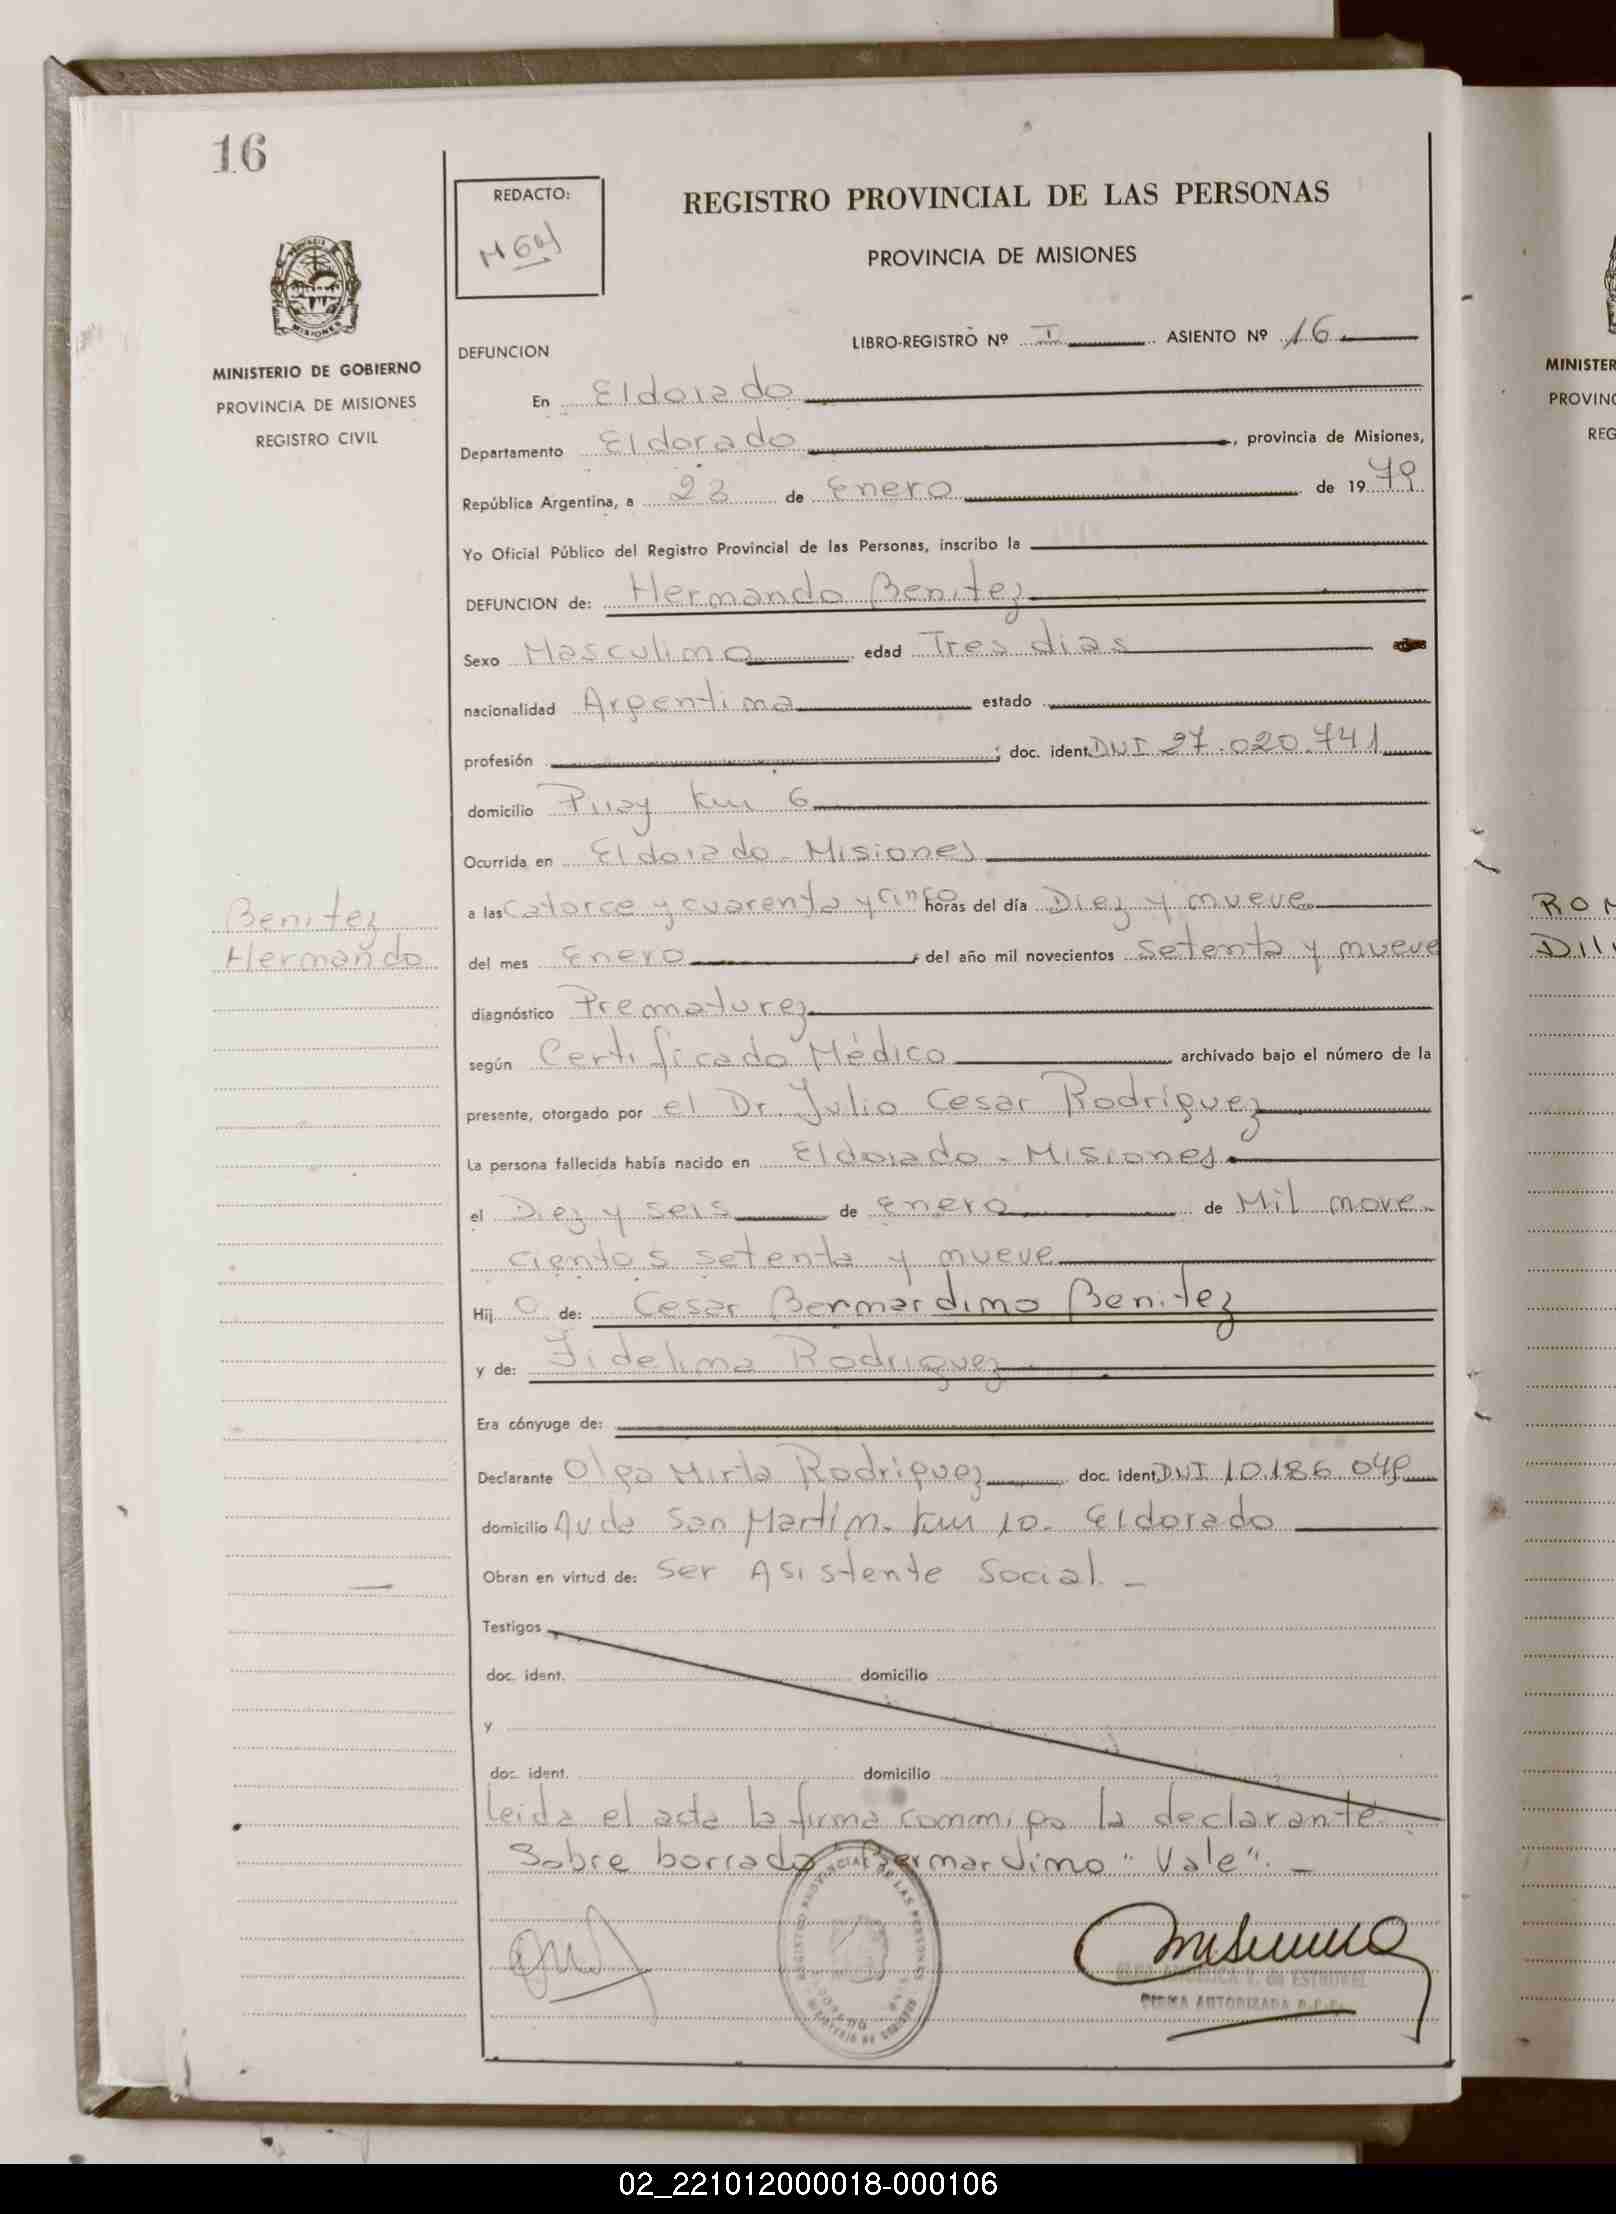 16
REDACTO:
REGISTRO PROVINCIAL DE LAS PERSONAS
PROVINCIA DE MISIONES
MISIONES
MINISTERIO DE GOBIERNO
PROVINCIA DE MISIONES
REGISTRO CIVIL
LIBRO-REGISTRO Nº I ASIENTO Nº 16
DEFUNCION
En Eldorado
Departamento Eldorado, provincia de Misiones,
República Argentina, a 23 de Enero de 1979
Yo Oficial Público del Registro Provincial de las Personas, inscribo la
DEFUNCION de: Hernando Benitez
Sexo Masculino edad Tres dias
nacionalidad Argentina estado
profesión ; doc. ident. DNI 27.020.741
domicilio Piray Km 6
Ocurrida en Eldorado - Misiones
a las Catorce y cuarenta y cinco horas del día Diez y nueve
Benitez
Hernando
del mes Enero, del año mil novecientos setenta y nueve
diagnóstico Prematurez
según Certificado Médico archivado bajo el número de la
presente, otorgado por el Dr. Julio Cesar Rodríguez
La persona fallecida había nacido en Eldorado - Misiones
el Diez y seis de Enero de Mil nove-
cientos setenta y nueve
Hijo de: Cesar Bernardino Benitez
y de: Fidelina Rodriguez
Era cónyuge de:
Declarante Olga Mirta Rodríguez doc. ident. DNI 10.186.049
domicilio Avda San Martín - Km 10 - Eldorado
Obran en virtud de: Ser Asistente Social. -
Testigos
doc. ident. domicilio
y
doc. ident. domicilio
Leida el acta la firma conmigo la declarante.
Sobre borrado Bernardino "Vale". -
REGISTRO PROVINCIAL DE LAS PERSONAS
ANGELICA V. de
FIRMA AUTORIZADA
MINISTER
PROVINC
REG
ROM
DIL
02_221012000018-000106